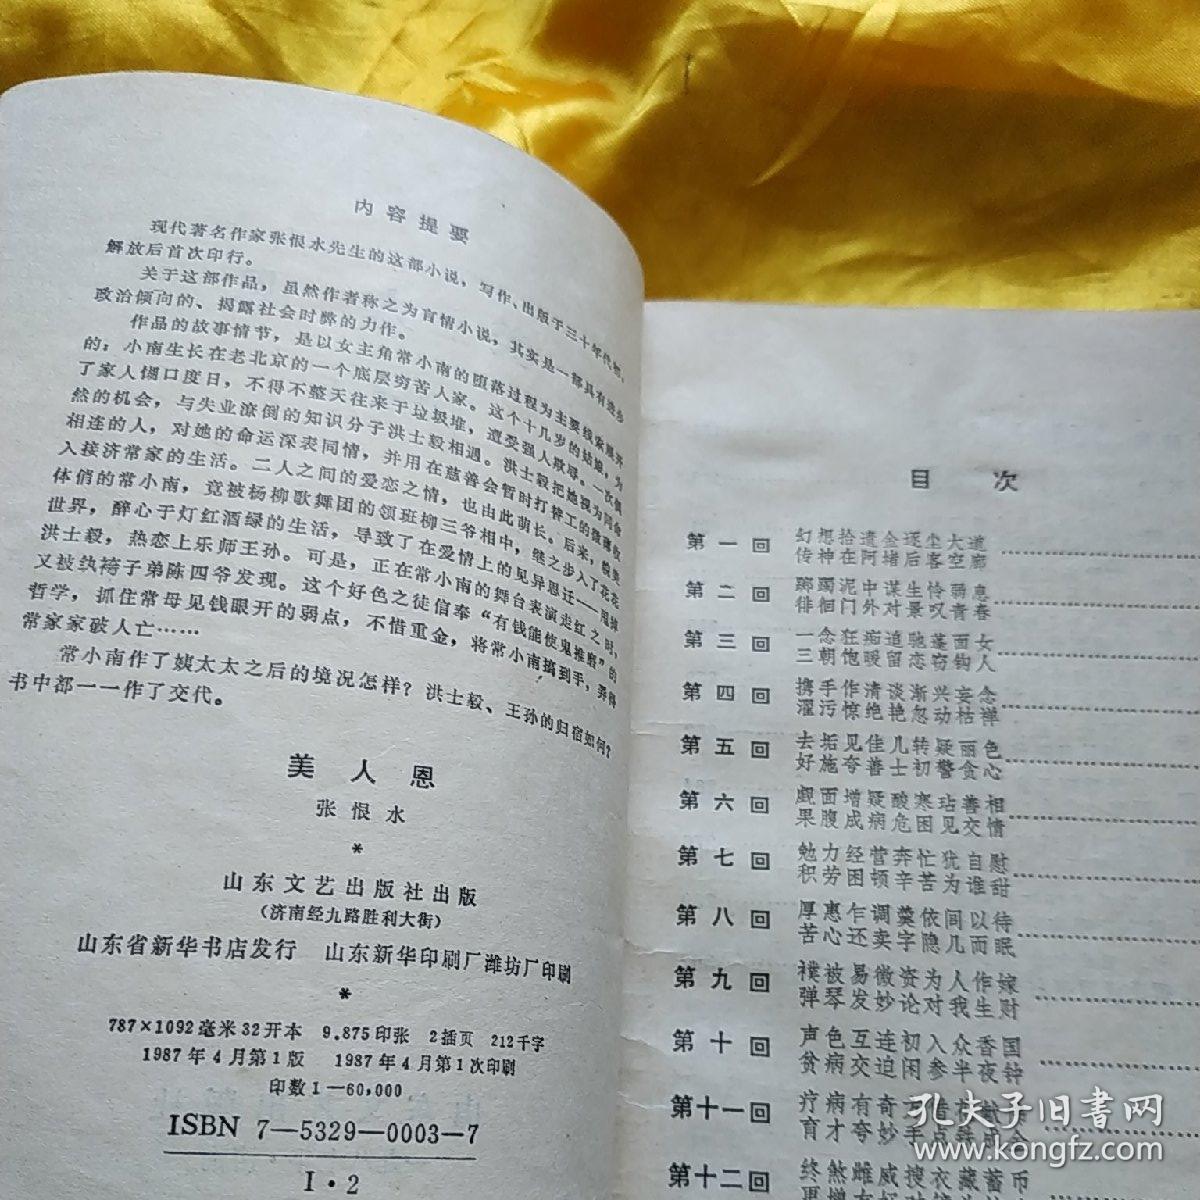 内容提要
现代著名作家张恨水先生的这部小说，写作、出版于三十年代初，
解放后首次印行。
关于这部作品，虽然作者称之为言情小说，其实是一部具有进步
政治倾向的、揭露社会时弊的力作。
作品的故事情节，是以女主角常小南的堕落过程为主要线索展开
的：小南生长在老北京的一个底层穷苦人家。这个十几岁的姑娘，为
了家人餬口度日，不得不整天往来于垃圾堆，遭受强人欺辱。一次偶
然的机会，与失业潦倒的知识分子洪士毅相遇。洪士毅把她视为同命
相连的人，对她的命运深表同情，并用在慈善会暂时打替工的微薄收
入接济常家的生活。二人之间的爱恋之情，也由此萌长。后来，貌美
体俏的常小南，竟被杨柳歌舞团的领班柳三爷相中，继之步入了花花
世界，醉心于灯红酒绿的生活，导致了在爱情上的见异思迁——甩掉
洪士毅，热恋上乐师王孙。可是，正在常小南的舞台表演走红之时，
又被纨袴子弟陈四爷发现。这个好色之徒信奉“有钱能使鬼推磨”的
哲学，抓住常母见钱眼开的弱点，不惜重金，将常小南搞到手，弄得
常家家破人亡……
常小南作了姨太太之后的境况怎样？洪士毅、王孙的归宿如何？
书中都一一作了交代。
美人恩
张恨水
*
山东文艺出版社出版
（济南经九路胜利大街）
山东省新华书店发行 山东新华印刷厂潍坊厂印刷
*
787×1092毫米32开本 9.875印张 2插页 212千字
1987年4月第1版 1987年4月第1次印刷
印数1—60,000
ISBN 7—5329—0003—7
I·2
目次
第一回 幻想拾遗金逐尘大道
传神在阿堵后客空廊
第二回 踯躅泥中谋生怜弱息
徘徊门外对景叹青春
第三回 一念狂痴追驰蓬面女
三朝饱暖留恋窃钩人
第四回 携手作清谈渐兴妄念
濯污惊绝艳忽动枯禅
第五回 去垢见佳儿转疑丽色
好施夸善士初警贪心
第六回 觑面增疑酸寒玷善相
果腹成病危困见交情
第七回 勉力经营奔忙犹自慰
积劳困顿辛苦为谁甜
第八回 厚惠乍调羹依闾以待
苦心还卖字隐几而眠
第九回 襆被易微资为人作嫁
弹琴发妙论对我生财
第十回 声色互连初入众香国
贫病交迫闲参半夜钟
第十一回 疗病有奇
育才夸妙手
第十二回 终煞雌威搜衣藏蓄币
孔夫子旧书网
www.kongfz.com